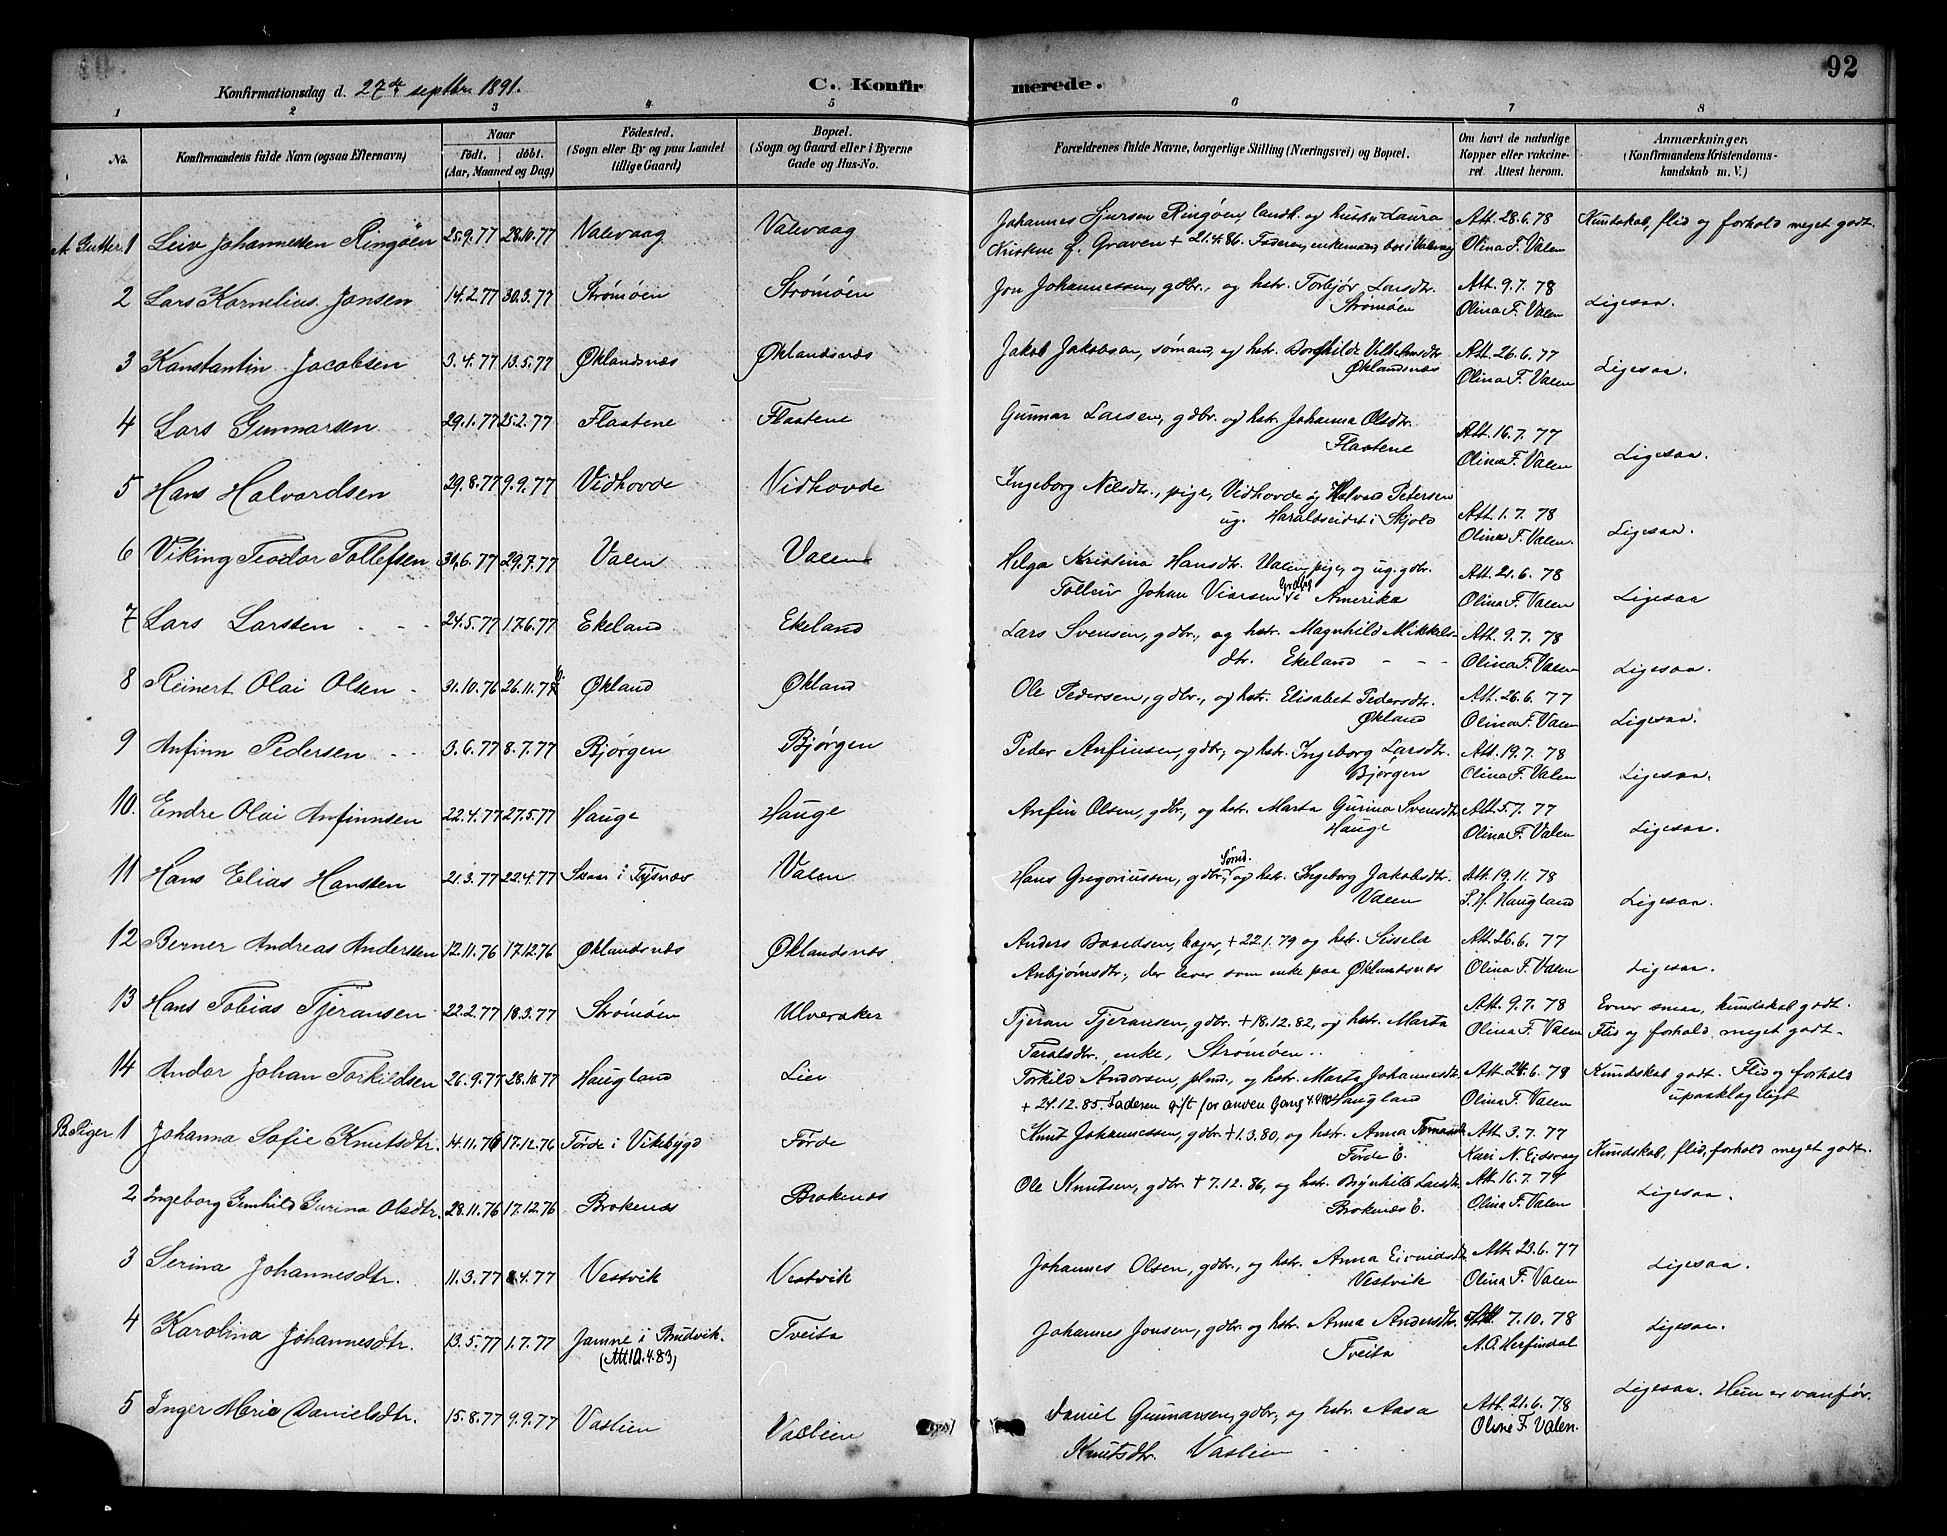 92
Konfirmationsdag d. 27de septbr. 1891.
C. Konfirmerede.
1 2 3 4 5 6 7 8
No.
Konfirmandens fulde Navn (ogsaa Efternavn)
Naar
födt. döbt.
(Aar, Maaned og Dag)
Födested.
(Sogn eller By og paa Landet tillige Gaard)
Bopæl.
(Sogn og Gaard eller i Byerne Gade og Hus-No.
Forældrenes fulde Navne, borgerlige Stilling (Næringsvei) og Bopæl.
Om havt de naturlige Kopper eller vakcineret. Attest herom.
Anmærkninger.
(Konfirmandens Kristendomskundskab m. V.)
A. Gutter. 1 Leiv Johannessen Ringøen 25.9.77 28.10.77 Valevaag Valevaag Johannes Sjursen Ringøen, landh. og hustru Laura Att. 28.6.78 Kundskab, flid og forhold meget godt.
Kristene f. Graven + 21.4.86. Faderen, enkemand, bor i Valevaag Olina F. Valen
2 Lars Kornelius Jonsen 14.2.77 30.3.77 Strømøen Strømøen Jon Johannessen, gdbr., og hstr. Torbjør Larsdtr. Att. 9.7.78 Ligesaa.
Strømøen Olina F. Valen
3 Konstantin Jacobsen 3.4.77 13.5.77 Øklandsnæs Øklandsnæs Jakob Jakobsen, sømand, og hstr. Borghilde Vilhelmsdtr. Att. 26.6.77 Ligesaa.
Øklandsnæs Olina F. Valen
4 Lars Gunnarsen 29.1.77 25.2.77 Flaatene Flaatene Gunnar Larsen, gdbr. og hstr. Johanna Olsdtr. Att. 16.7.77 Ligesaa.
Flaatene Olina F. Valen
5 Hans Halvardsen 29.8.77 9.9.77 Vidhovde Vidhovde Ingeborg Nilsdtr., pige, Vidhovde og Halvard Petersen Att. 1.7.78 Ligesaa.
ug. Haraldseidet i Skjold Olina F. Valen.
6 Viking Teodor Tollefsen 30.6.77 29.7.77 Valen Valen Helga Kristina Hansdtr. Valen, pige, og ug. gdbr. Att. 21.6.78 Ligesaa
Tolleiv Johan Viersen i Amerika Olina F. Valen
7 Lars Larssen 24.5.77 17.6.77 Ekeland Ekeland Lars Svensen, gdbr., og hstr. Magnhild Mikkels- Att. 9.7.78 Ligesaa.
dtr. Ekeland Olina F. Valen
8 Reinert Olai Olsen 31.10.76 26.11.76 Økland Økland Ole Pedersen, gdbr., og hstr. Elisabet Pedersdtr. Att. 26.6.77 Ligesaa.
Økland Olina F. Valen
9 Anfinn Pedersen 3.6.77 8.7.77 Bjørgen Bjørgen Peder Anfinsen, gdbr., og hstr. Ingeborg Larsdtr. Att. 19.7.78 Ligesaa.
Bjørgen Olina F. Valen
10. Endre Olai Anfinnsen 22.4.77 27.5.77 Hauge Hauge Anfin Olsen, gdbr., og hstr. Marta Gurina Svensdtr. Att. 5.7.77 Ligesaa.
Hauge Olina F. Valen
11 Hans Elias Hanssen 21.3.77 22.4.77 Skaar i Tysnæs Valen Hans Gregoriussen, gdbr., og hstr. Ingeborg Jakobsdtr. Att. 19.11.78 Ligesaa.
Valen P. H. Haugland
12 Berner Andreas Anderssen 12.11.76 17.12.76 Øklandsnæs Øklandsnæs. Anders Baardsen, bager, + 22.1.79 og hstr. Sissela Att. 26.6.77 Ligesaa.
Anbjørnsdtr., der lever som enke paa Øklandsnæs Olina F. Valen
13 Hans Tobias Tjeransen 22.2.77 18.3.77 Strømøen Ulveraker Tjeran Tjeransen, gdbr. + 18.12.82, og hstr. Marta Att. 9.7.78 Evner smaa, kundskab godt.
Taralsdtr. enke, Strømøen. Olina F. Valen Flid og forhold meget godt.
14 Andor Johan Torkildsen 26.9.77 28.10.77 Haugland Lier Torkild Andorsen, plmd., og hstr. Marta Johannesdtr. Att. 24.6.78 Kundskab godt. Flid og forhold
+ 24.12.85. Faderen gift for anden Gang Haugland Olina F. Valen upaaklageligt
B. Piger 1 Johanna Sofie Knutsdtr. 14.11.76 17.12.76 Førde i Vikebygd Førde Knut Johannessen, gdbr. + 1.3.80, og hstr. Anna Att. 3.7.77 Kundskab, flid, forhold meget godt.
Førde E. Kari N. Eidsvaag
2 Ingeborg Gunhild Gurina Olsdtr. 28.11.76 17.12.76 Brokenæs Brokenæs Ole Knutsen, gdbr. + 7.12.86, og hstr. Brynhilte Larsdtr. Att. 16.7.79 Ligesaa.
Brokenæs E. Olina F. Valen
3 Serina Johannesdtr. 11.3.77 4.77 Vestvik Vestvik Johannes Olsen, gdbr., og hstr. Anna Eivindsdtr. Att. 23.6.77 Ligesaa.
Vestvik Olina F. Valen
4 Karolina Johannesdtr. 13.5.77 1.7.77 Jamne i Bruvik. Tveita Johannes Jonsen, gdbr. og hstr. Anna Andersdtr. Att. 7.10.78 Ligesaa.
(Att 10.4.83) Tveita A. O. Herfindal
5 Inger Marie Danielsdtr. 15.8.77 9.9.77 Vaslien Vaslien Daniel Gunnarsen, gdbr., og hstr. Aasa Att. 21.6.78 Ligesaa. Hun er vanför.
Knutsdtr. Vaslien Oline F. Valen.